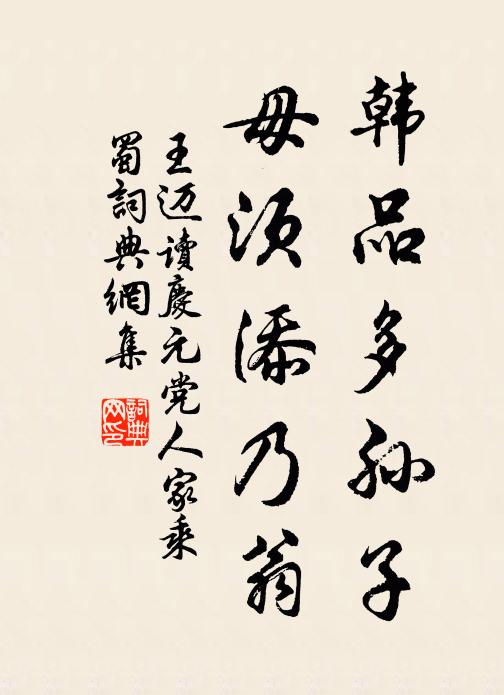 韩品多孙子
毋须添乃翁
王迈读慶元党人家乘
蜀詞典網集
詞典网印